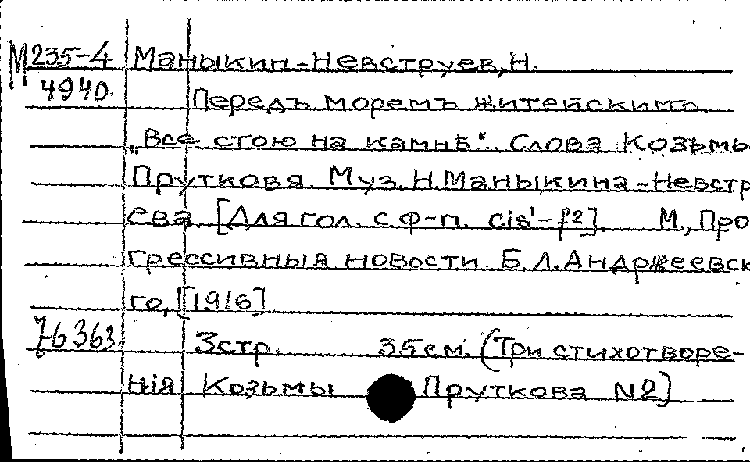 М 235-4 Маныкин-Невструев, Н.
4940. Передъ моремъ житейскимъ
„Все стою на камнѣ". Слова Козьмы
Пруткова Муз. Н. Маныкина-Невстр
ева. [Для гол. с ф-п. cis¹-f²]. М., Про
грессивныя новости Б. Л. Андржеевск
го, [1916]
76363 3стр. 35см. (Три стихотворе-
нія Козьмы Пруткова №2)